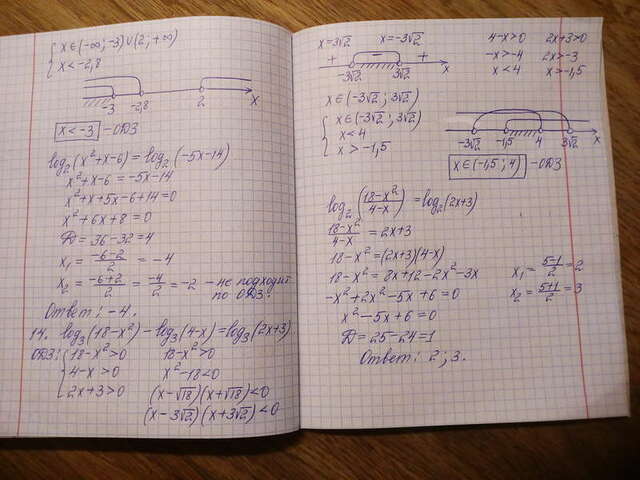 { x∈(-∞;-3)∪(2;+∞)
x<-2,8
-3 -2,8 2 x
x<-3 -ОДЗ
log₂(x²+x-6)=log₂(-5x-14)
x²+x-6=-5x-14
x²+x+5x-6+14=0
x²+6x+8=0
D=36-32=4
x₁=(-6-2)/2=-4
x₂=(-6+2)/2=-4/2=-2 -не подходит
по ОДЗ.
Ответ: -4.
14. log₃(18-x²)-log₃(4-x)=log₃(2x+3)
ОДЗ: { 18-x²>0 18-x²>0
4-x>0 x²-18<0
2x+3>0 (x-√18)(x+√18)<0
(x-3√2)(x+3√2)<0
x=3√2 x=-3√2 4-x>0 2x+3>0
+ - + -x>-4 2x>-3
-3√2 3√2 x x<4 x>-1,5
x∈(-3√2; 3√2)
{ x∈(-3√2; 3√2)
x<4
x>-1,5
-3√2 -1,5 4 3√2 x
x∈(-1,5; 4) -ОДЗ
log₂((18-x²)/(4-x))=log₂(2x+3)
(18-x²)/(4-x)=2x+3
18-x²=(2x+3)(4-x)
18-x²=8x+12-2x²-3x x₁=(5-1)/2=2
-x²+2x²-5x+6=0 x₂=(5+1)/2=3
x²-5x+6=0
D=25-24=1
Ответ: 2; 3.